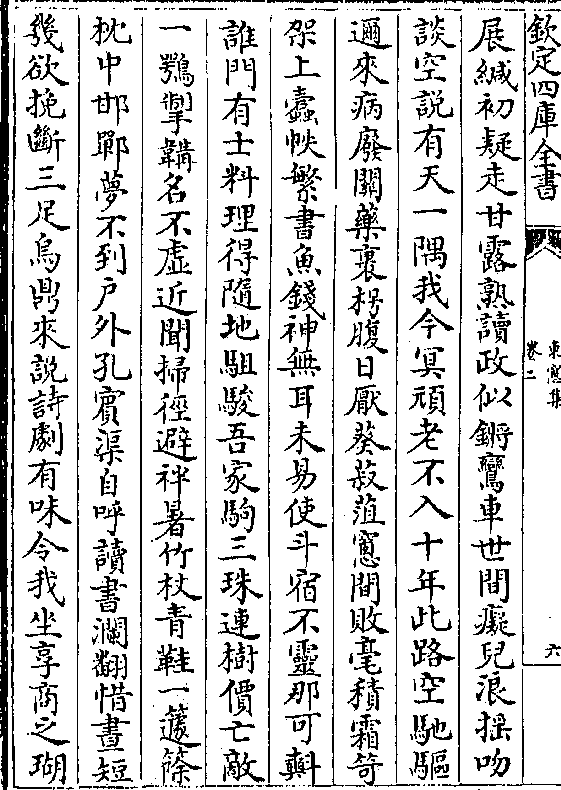 欽定四庫全書
東窻集
卷二
六
展緘初疑走甘露熟讀政似鏘鸞車世間癡兒浪揺吻
談空說有天一隅我今冥頑老不入十年此路空馳驅
邇來病廢闗藥裹枵腹日厭葵菽葅窻間敗毫積霜笴
架上蠧帙繁書魚錢神無耳未易使斗宿不靈那可㪺
誰門有士料理得隨地駔駿吾家駒三珠連樹價亡敵
一鶚掣韝名不虛近聞掃徑避袢暑竹杖青鞵一籧篨
枕中邯鄲夢不到户外孔賓渠自呼讀書瀾翻惜晝短
幾欲挽斷三足烏鼎來說詩劇有味令我坐享商之瑚